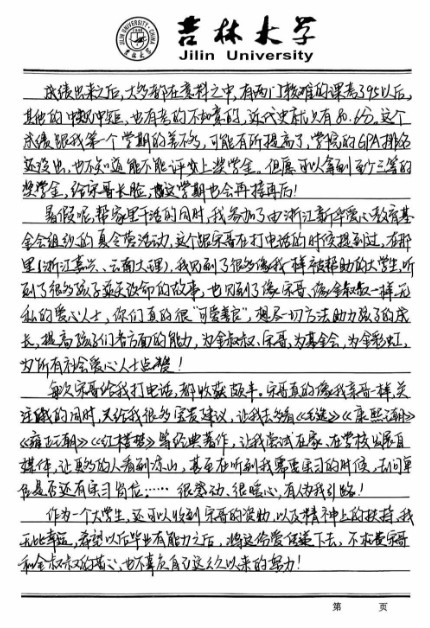 吉林大学
Jilin University
成绩出来之后,大多都在意料之中,有两门较难的课高了95以后,
其他的中规中矩,也有考的不如意的,近代史就只有80.6分。这个
成绩跟我第一个学期的差不多,可能有所提高了,学院的GPA排名
还没出,也不知道能不能评上奖学金。但愿可以拿到至少三等的
奖学金,给宋哥长脸,这学期也会再接再厉!
暑假呢,帮家里干活的同时,我参加了由浙江新华爱心教育基
金会组织的夏令营活动,这个跟宋哥在打电话的时候提到过,在那
里(浙江嘉兴、云南大理),我见到了很多像我一样被帮助的大学生,听
到了很多孩子逆天改命的故事,也见到了像宋哥、像金叔叔一样无
私的爱心人士,你们真的很“可爱善良”,想尽一切方法助力孩子的成
长,提高孩子们各方面的能力,为金叔叔、宋哥,为基金会,为金彩虹,
为所有社会爱心人士点赞!
每次宋哥给我打电话,都收获颇丰。宋哥真的像我亲哥一样,关
注我的同时,又给我很多宝贵建议,让我去看《毛选》《康熙王朝》
《雍正王朝》《红楼梦》等经典著作,让我尝试在家、在学校发展自
媒体,让更多的人看到凉山,甚至在听到我需要实习的时候,去问单
位是否还有实习岗位……很感动、很暖心,有人为我引路!
作为一个大学生,还可以收到宋哥的资助,以及精神上的扶持,我
无比幸运,希望以后毕业有能力之后,将这份爱传递下去,不枉费宋哥
和金叔叔的苦心,也不辜负自己这么久以来的努力!
第 页